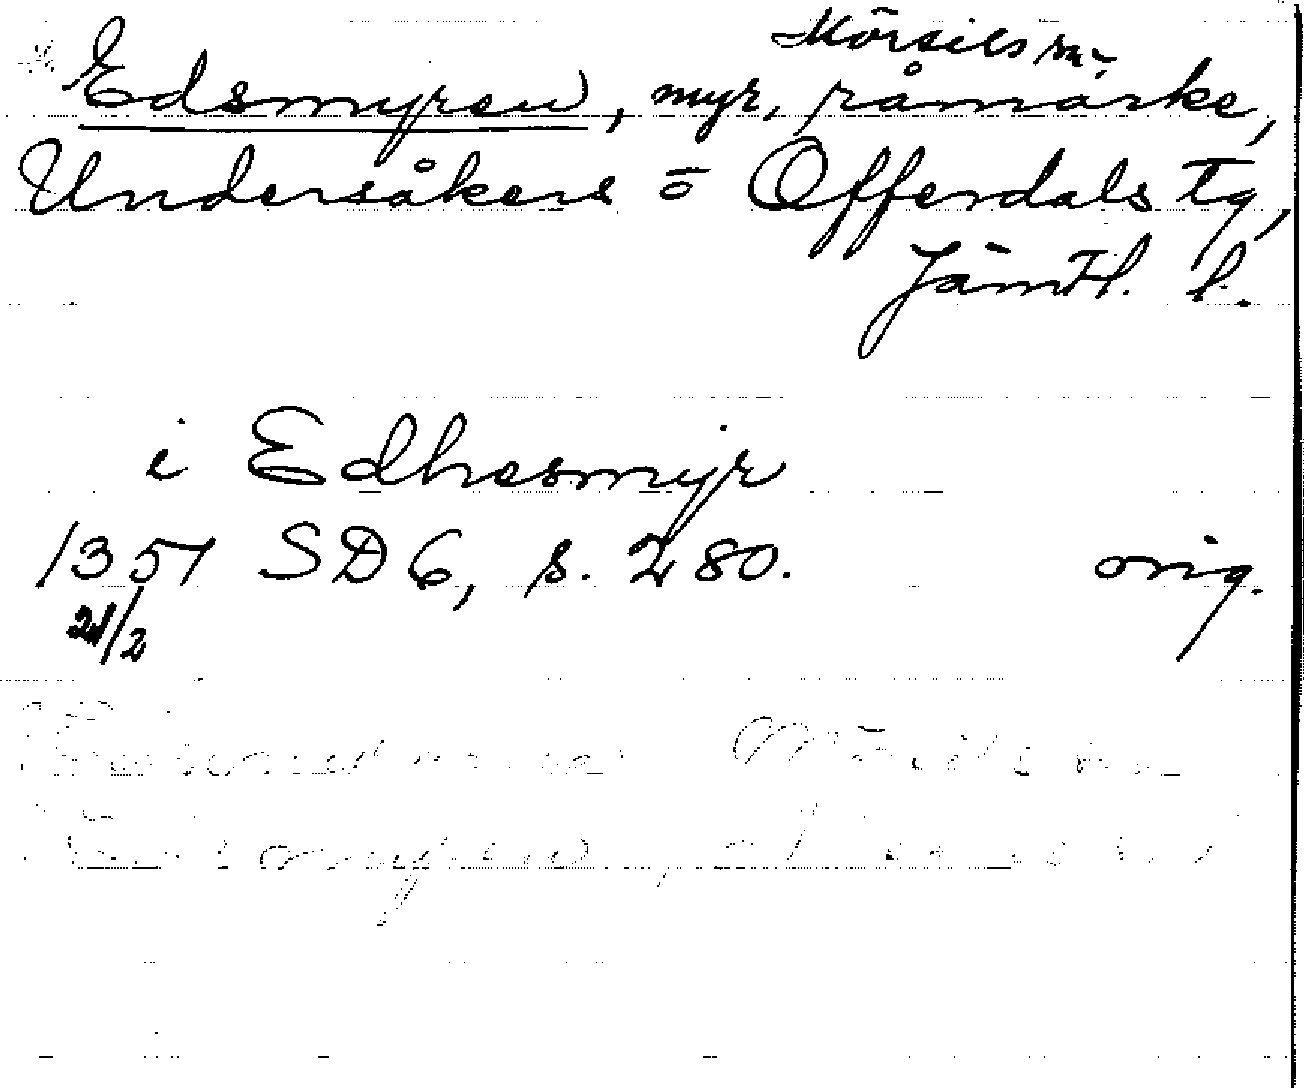 Mörsils sn.
Edsmyren, myr, råmärke,
Undersåkers o Offerdals tg,
Jämtl. l.
i Edhesmyr
1351 SD 6, s. 280. orig.
21/2